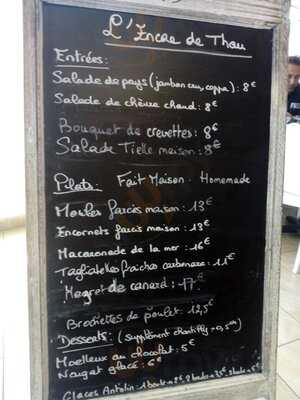 L'Encre de Thau
Entrées:
Salade de pays (jambon cru, coppa): 8€
Salade de chèvre chaud: 8€
Bouquet de crevettes: 8€
Salade Tielle maison: 8€
Plats: Fait Maison. Homemade
Moules farcies maison: 13€
Encornets farcis maison: 13€
Macaronade de la mer: 16€
Tagliatelles fraîches carbonara: 11€
Magret de canard: 17€
Brochettes de poulet: 12,5€
Desserts: (supplément chantilly + 0,50€)
Moelleux au chocolat: 5€
Nougat glacé: 6€
Glaces Antolin: 1 boule 2€ 2 boules